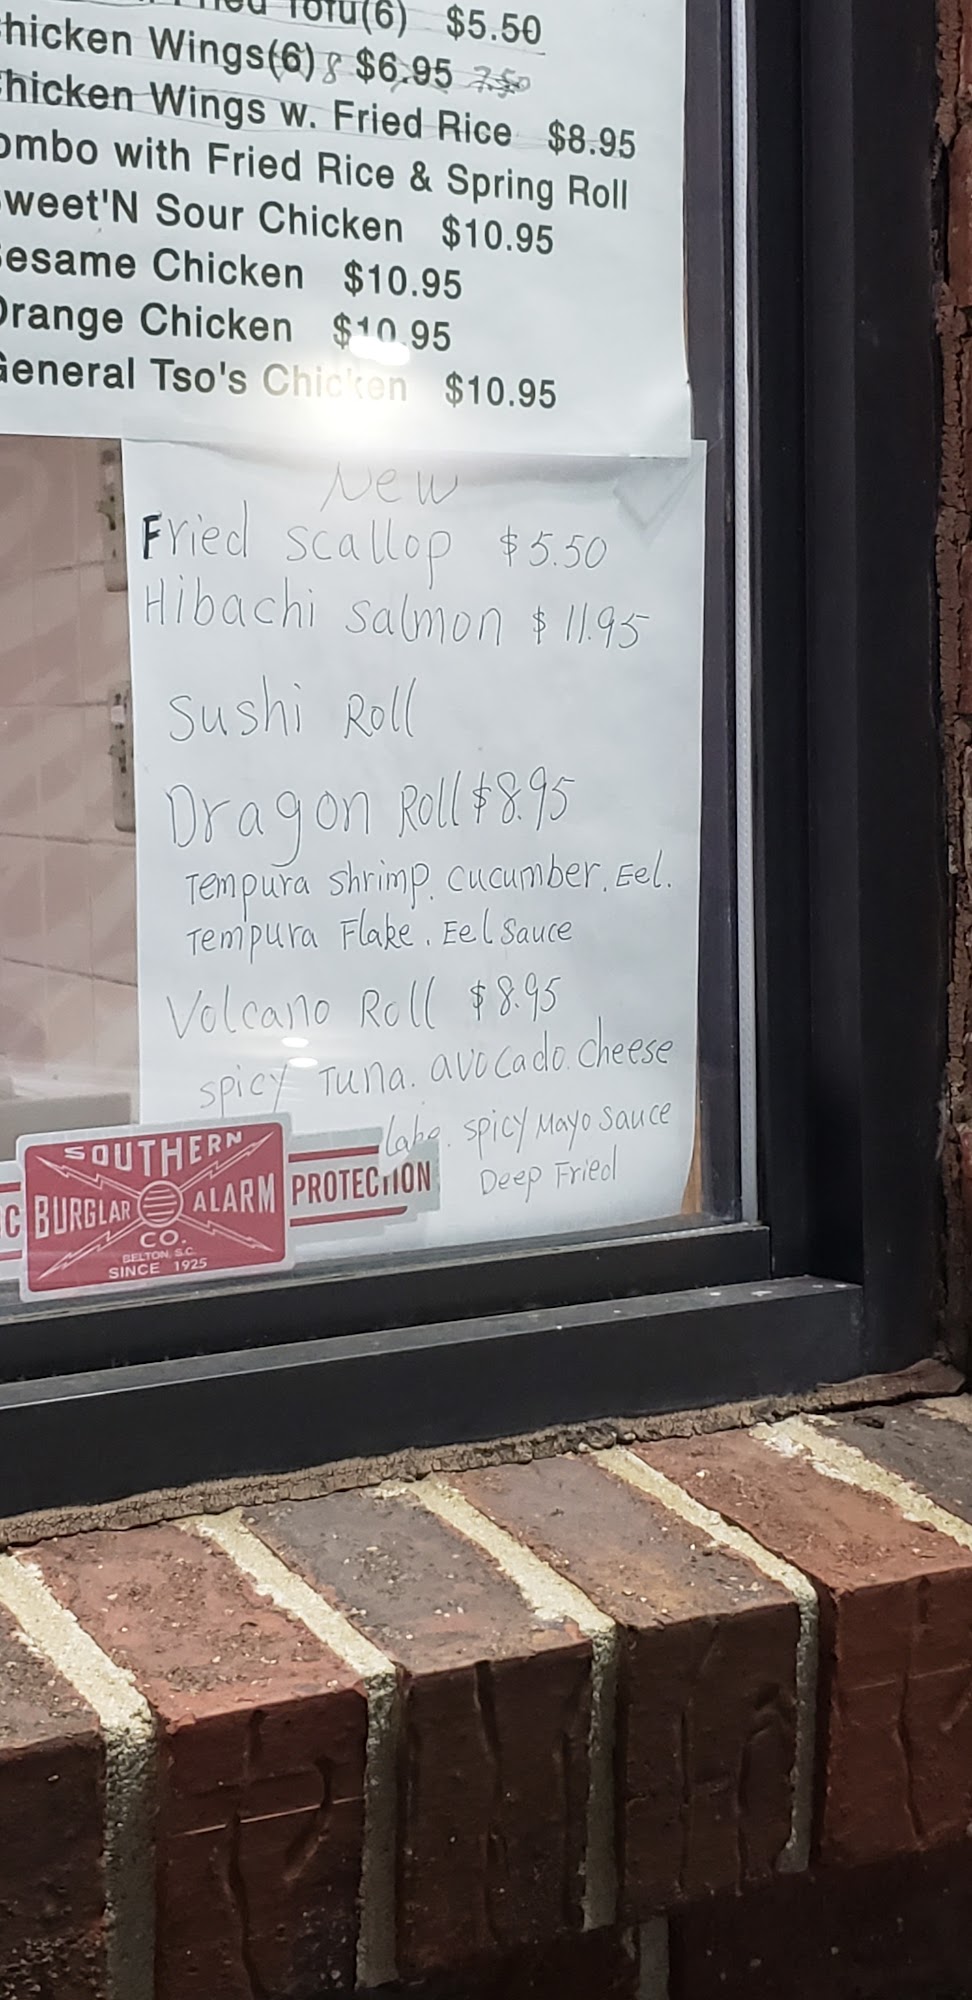 Tofu(6) $5.50
hicken Wings(6) 8 $6.95 7.50
hicken Wings w. Fried Rice $8.95
ombo with Fried Rice & Spring Roll
weet'N Sour Chicken $10.95
esame Chicken $10.95
Orange Chicken $10.95
General Tso's Chicken $10.95
New
Fried scallop $5.50
Hibachi salmon $11.95
Sushi Roll
Dragon Roll $8.95
Tempura shrimp. cucumber. Eel.
Tempura Flake. Eel Sauce
Volcano Roll $8.95
spicy Tuna. avocado. cheese
lake. spicy Mayo sauce
Deep Fried
SOUTHERN
C BURGLAR ALARM PROTECTION
CO.
BELTON, S.C.
SINCE 1925